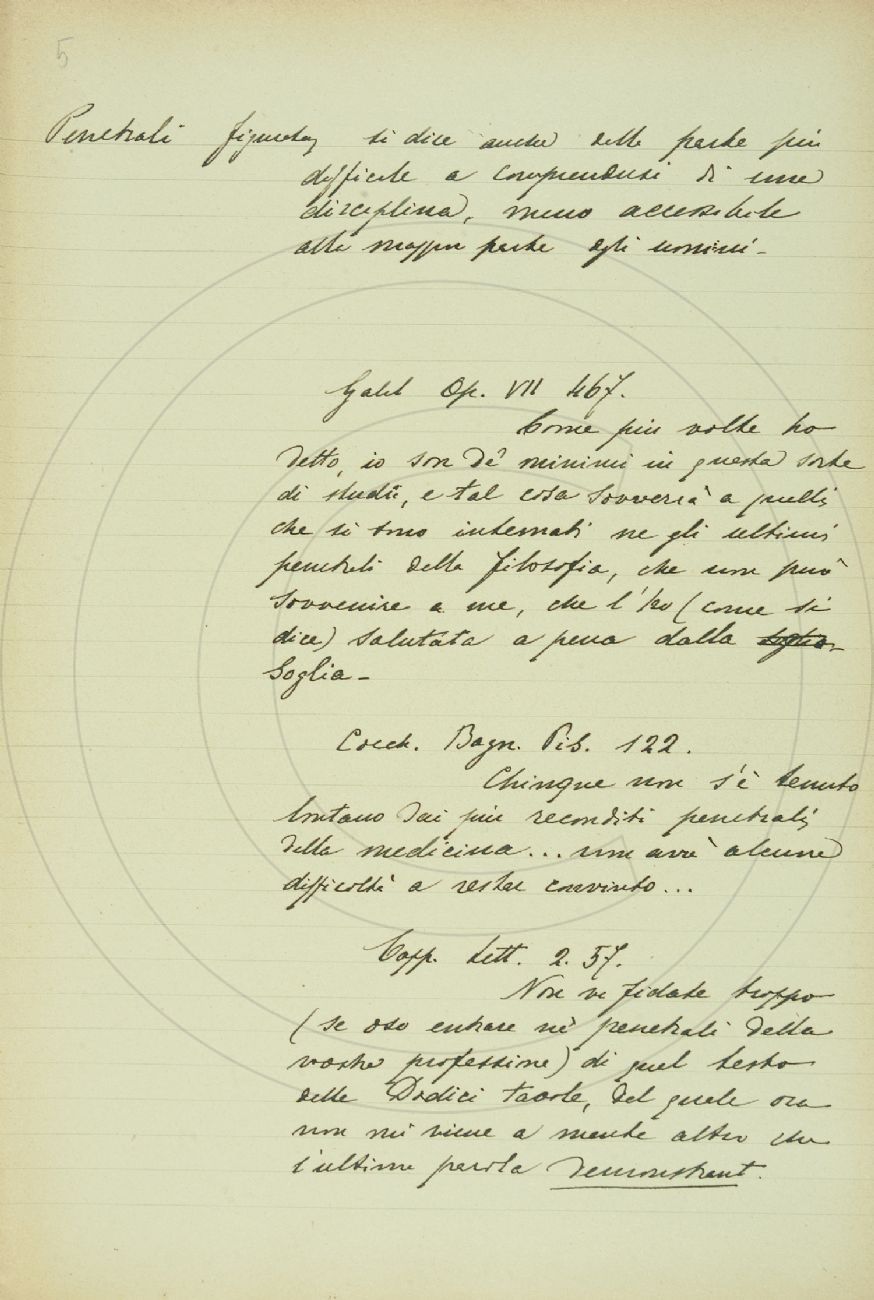 5
Penetrali figurata si dice anche delle parte più
difficile a comprendersi di una
disciplina, meno accessibile
alla maggior parte degli uomini -
Galil Op. VII 467.
Come più volte ho
detto, io son de' minimi in questa sorte
di studii, e tal cosa sovverrà a quelli
che si sono internati ne gli ultimi
penetrali della filosofia, che non può
sovvenire a me, che l'ho (come si
dice) salutata a pena dalla soglia
Soglia -
Cocch. Bagn. Pis. 122.
Chiunque non s'è tenuto
lontano dai più reconditi penetrali
della medicina... non avrà alcuna
difficoltà a restar convinto...
Capp. Lett. 2. 57.
Non vi fidate troppo
(se oso entrare nè penetrali della
vostra professione) di quel testo
delle Dodici tavole, del quale ora
non mi viene a mente altro che
l'ultima parola demonstrant.